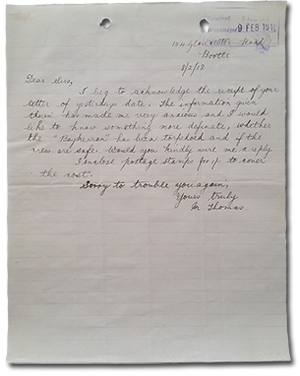 134 Gloucester Road
Bootle
8/2/18
9 FEB. 1918
Dear Sirs,
I beg to acknowledge the receipt of your
letter of yesterdays date. The information given
has made me very anxious and I would
like to know something more definate, whether
the "Bayherran" has been torpedoed and if the
crew are safe. Would you kindly wire me a reply
I enclose postage stamps for to cover
the cost.
Sorry to trouble you again,
Yours truly
M Thomas.